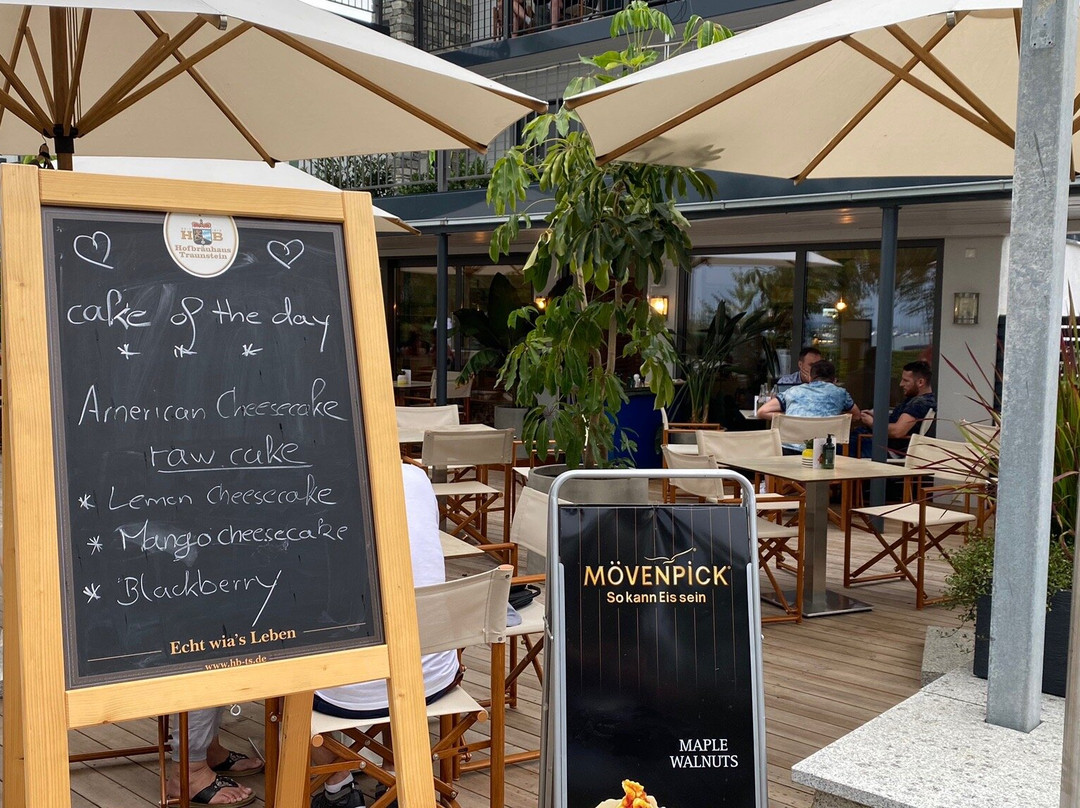 HB
Hofbräuhaus
Traunstein
cake of the day
American Cheesecake
raw cake
* Lemon Cheesecake
* Mango cheesecake
* Blackberry
Echt wia's Leben
www.hb-ts.de
MÖVENPICK
So kann Eis sein
MAPLE
WALNUTS